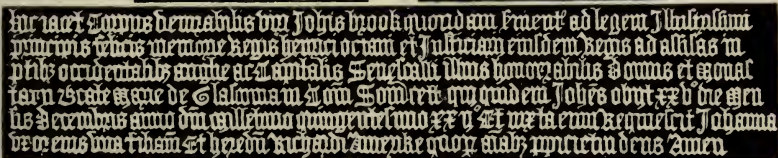 hic iacet Corpus venerabilis viri Johis brook quondam seruient ad legem Illustrissimi
principis felicis memorie Regis henrici octaui et Justiciarij eiusdem Regis ad assisas in
ptibz occidentalibz anglie ac Capitalis Senescalli illius honorabilis Domus et monas
terij Beate Marie de Glasconia in Com Somerset qui quidem Johes obijt xxvo die men
sis Decembris anno dni millesimo quingentesimo xxijo Et iuxta eum Requiescit Johanna
vxor eius vna filiarum Et heredum Richardi Amerike quorum aiabz propicietur deus Amen